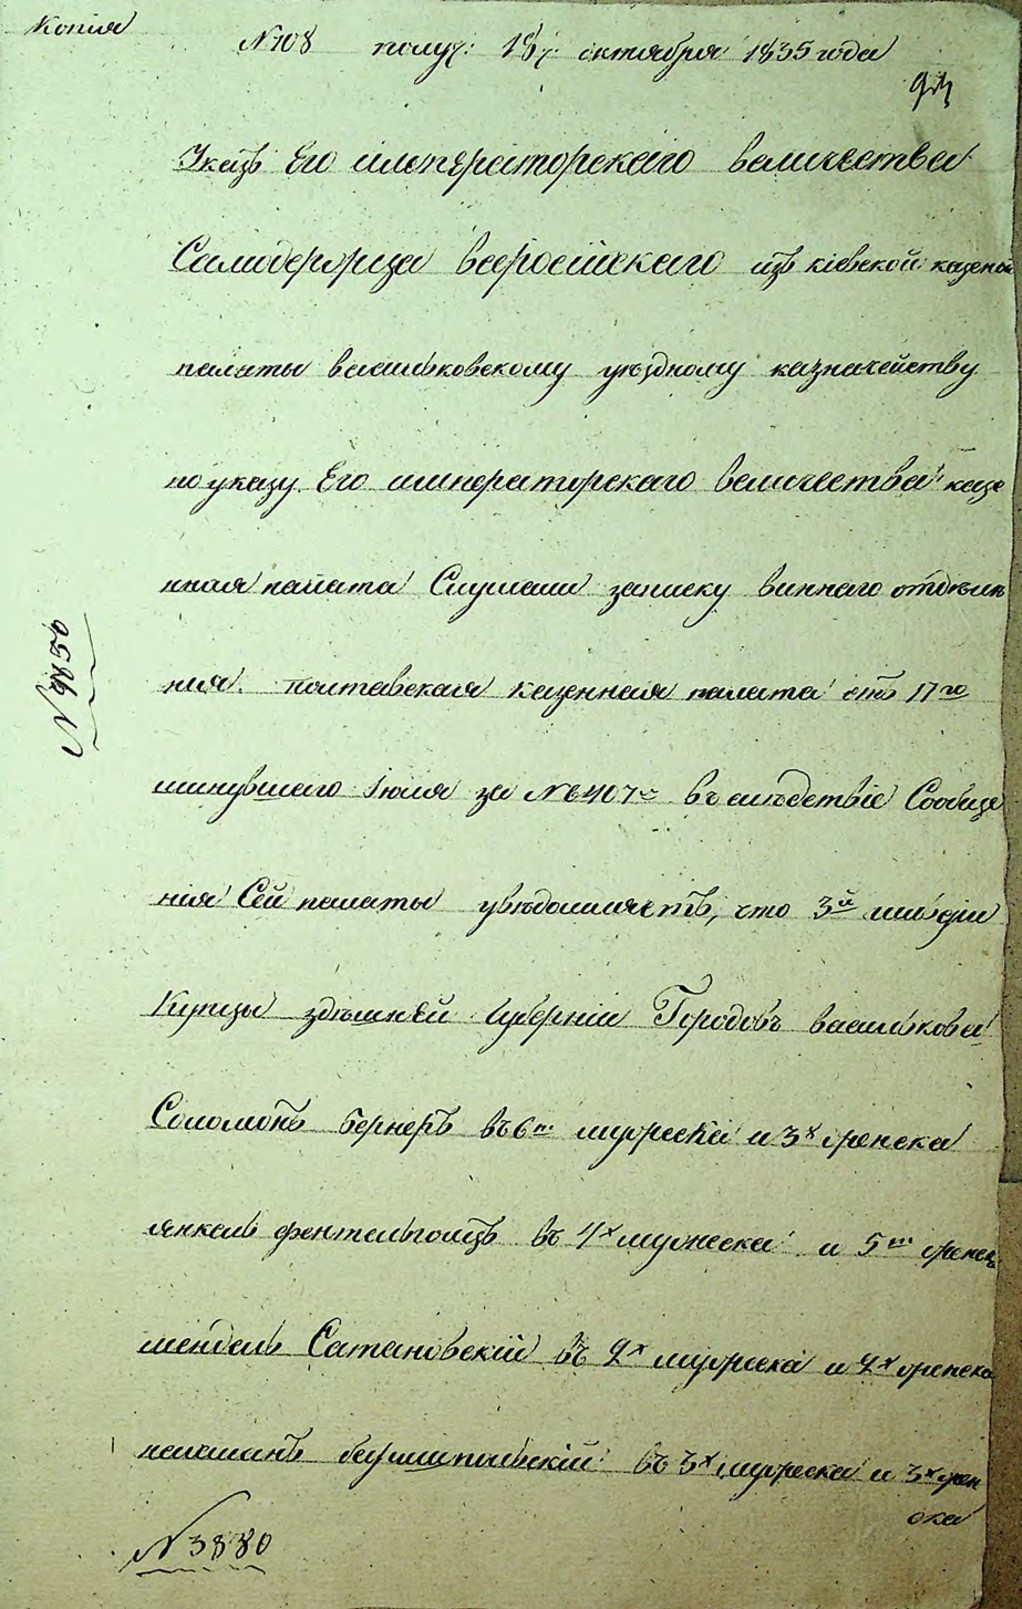 Копія
№ 708 получ: 18 октября 1835 года
Указъ Его императорскаго величества
Самодержца всеросійскаго изъ кіевской казеной
палаты васильковскому уѣздному казначейству
по указу Его императорскаго величества казе
нная палата Слушали записку виннаго отдѣле
нія. полтавская казенная палата отъ 17го
минувшаго Іюля за № 6407м въ слѣдствіе Сообще
нія Сей палаты увѣдомляетъ, что 3й гильдіи
Купцы здѣшней Губерніи Городовъ василькова
Соломонъ бернеръ въ 6ти мужеска и 3х женска
янкель фентельгольцъ въ 4х мужеска и 5ти женск
мендель Сатановскій въ 2х мужеска и 4х женска
бѣлопольскій въ 3х мужеска и 3х жен
ска
№ 9850
№ 3880